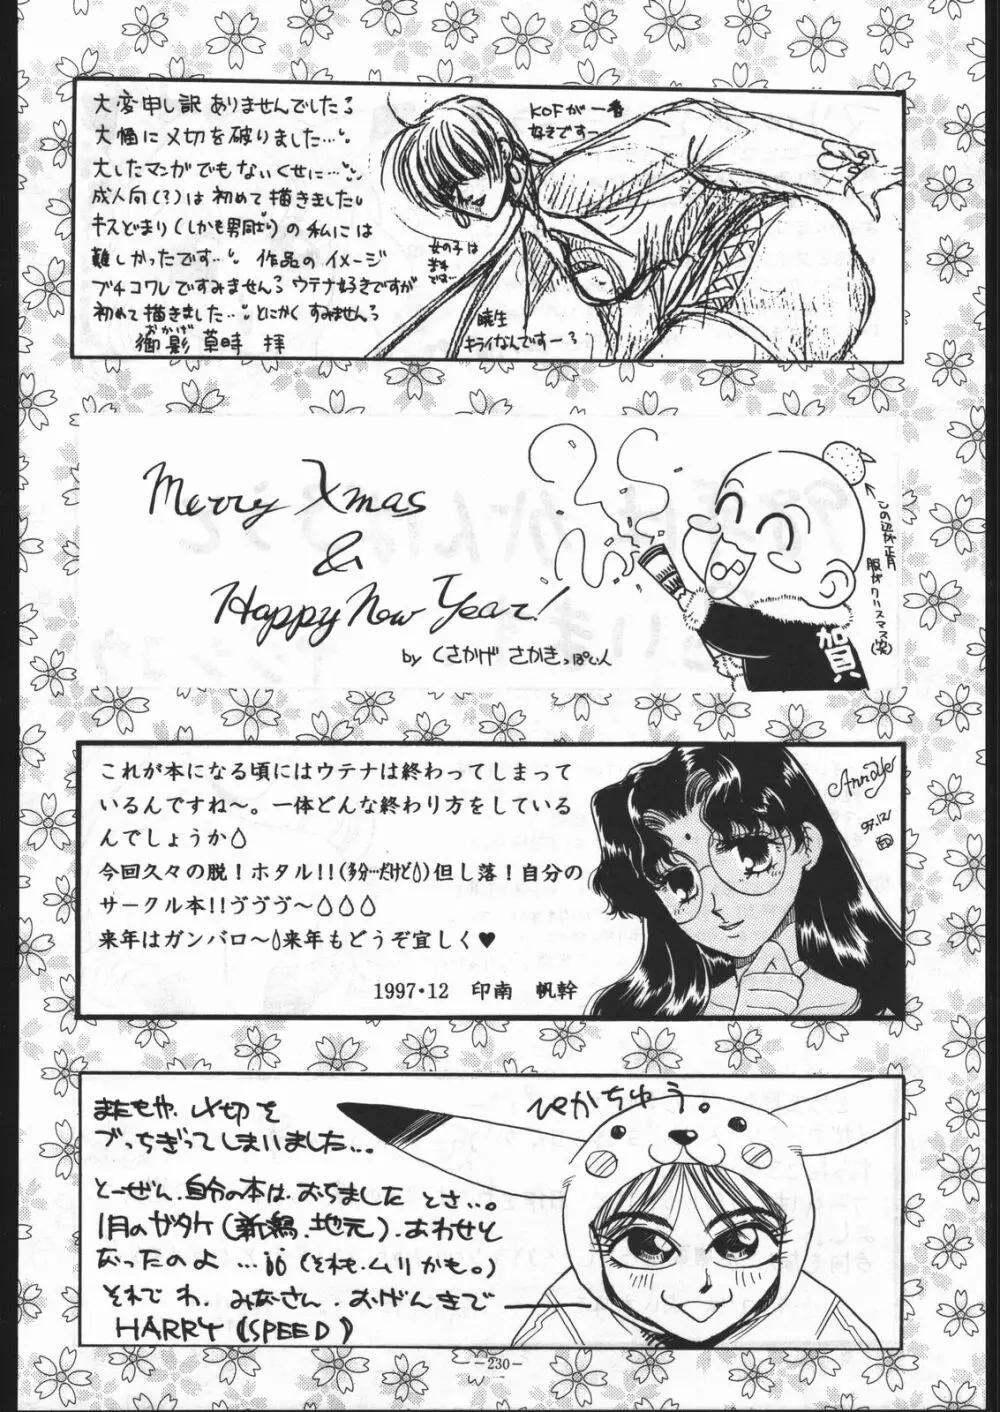 大変申し訳ありませんでした
大幅に〆切を破りました…
大したマンガでもないくせに…
成人向(?)は初めて描きました
キスどまり(しかも男同士)の私には
難しかったです… 作品のイメージ
ブチコワしですみません ウテナ好きですが
初めて描きました… とにかくすみません
草時 拝
KOFが一番
好きですー
女の子は
暁生
キライなんですー
Merry Xmas
&
Happy New Year!
by くさかげ さかきっぽい人
この辺正月
服がクリスマス(笑)
賀
これが本になる頃にはウテナは終わってしまって
いるんですね〜。一体どんな終わり方をしている
んでしょうか
今回久々の脱!ホタル!!(多分…だけど)但し落!自分の
サークル本!!ヴヴヴ〜
来年はガンバロ〜来年もどうぞ宜しく♥
1997・12 印南 帆幹
97.12
印
ぴかちゅう。
またもや、〆切を
ブッちぎってしまいました…。
とーぜん、自分の本は、おちました とさ…。
1月のガタケ(新潟、地元)、あわせと
なったのよ …(それも、ムリかも。)
それでわ、みなさん、おげんきで
HARRY(SPEED)
－230－